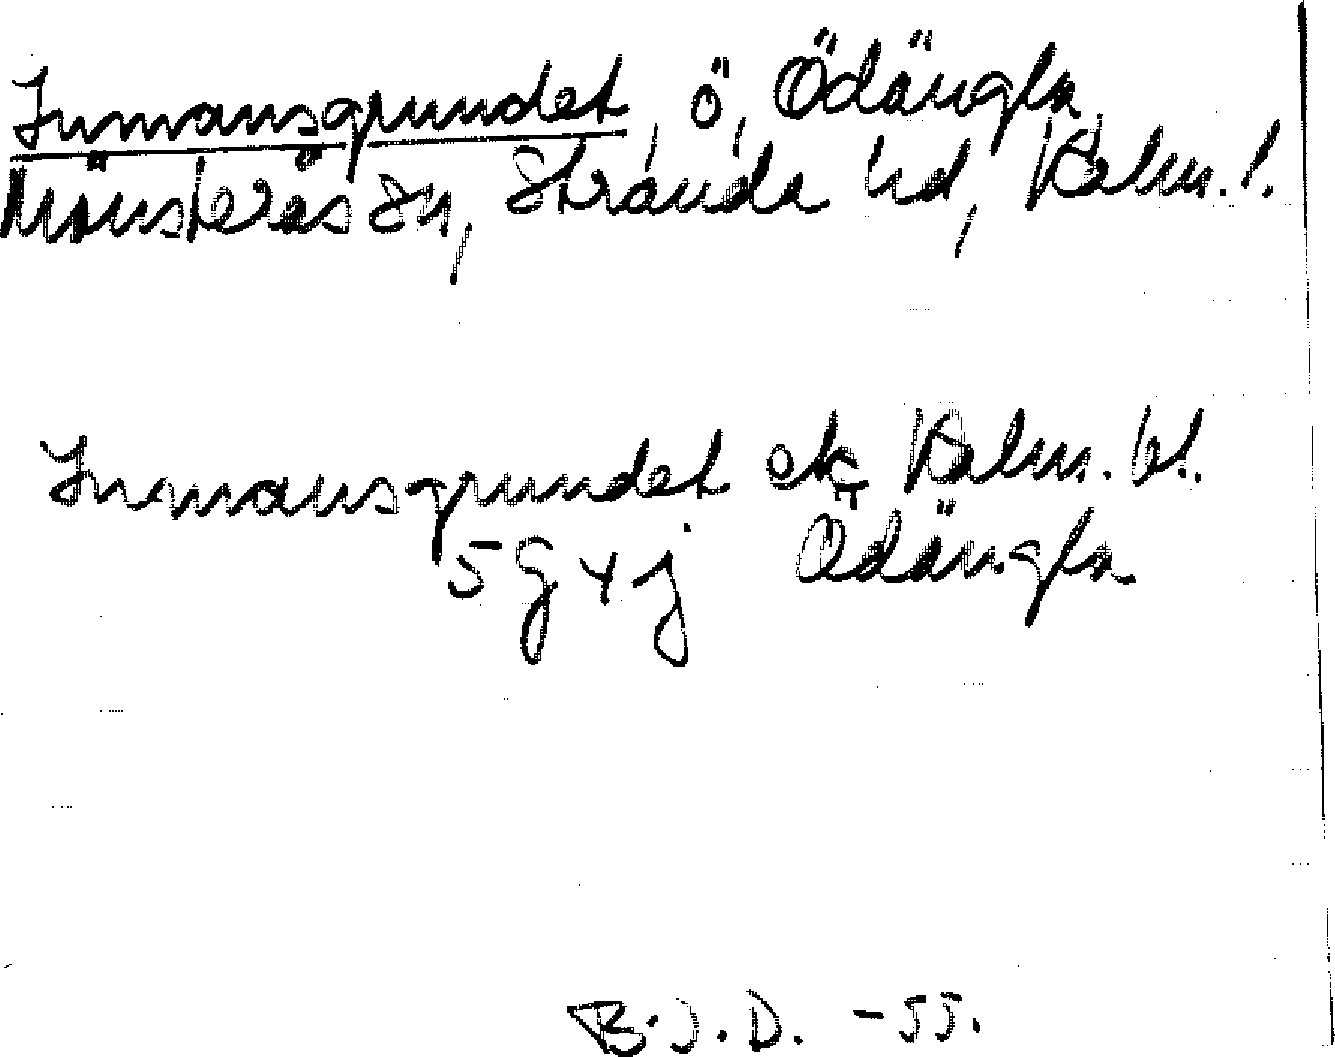 Inmansgrundet, ö, Ödängla,
Mönsterås sn, Stranda hd, Kalm. l.
Inmansgrundet ek Kalm. bl.
5 G 4 j Ödängla
B.J.D. -55.